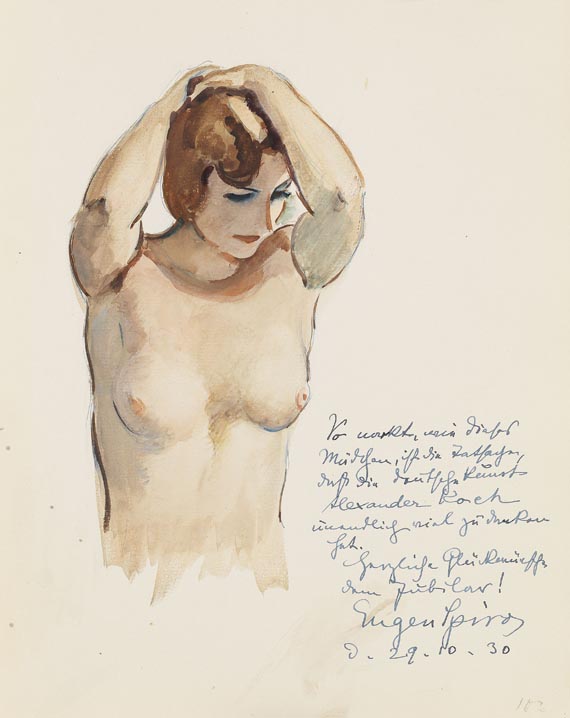 So nackt, wie dieses
Mädchen, ist die Tatsache,
daß die deutsche Kunst
Alexander Koch
unendlich viel zu danken
hat.
Herzliche Glückwünsche
dem Jubilar!
Eugen Spiro
D. 29.10.30
102